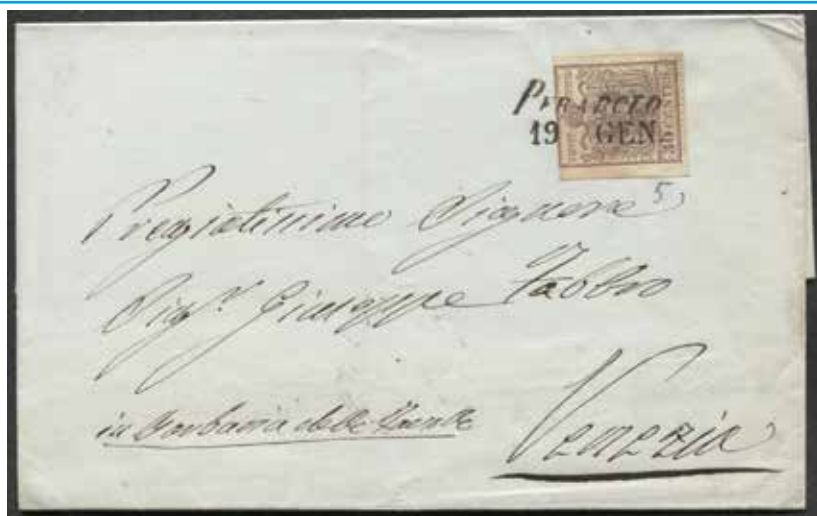 PERAROLO
19 GEN
30 CENTES
5
Pregiatissimo Signore
Sig.r Giuseppe Fabbro
in Barbaria delle Tavole
Venezia